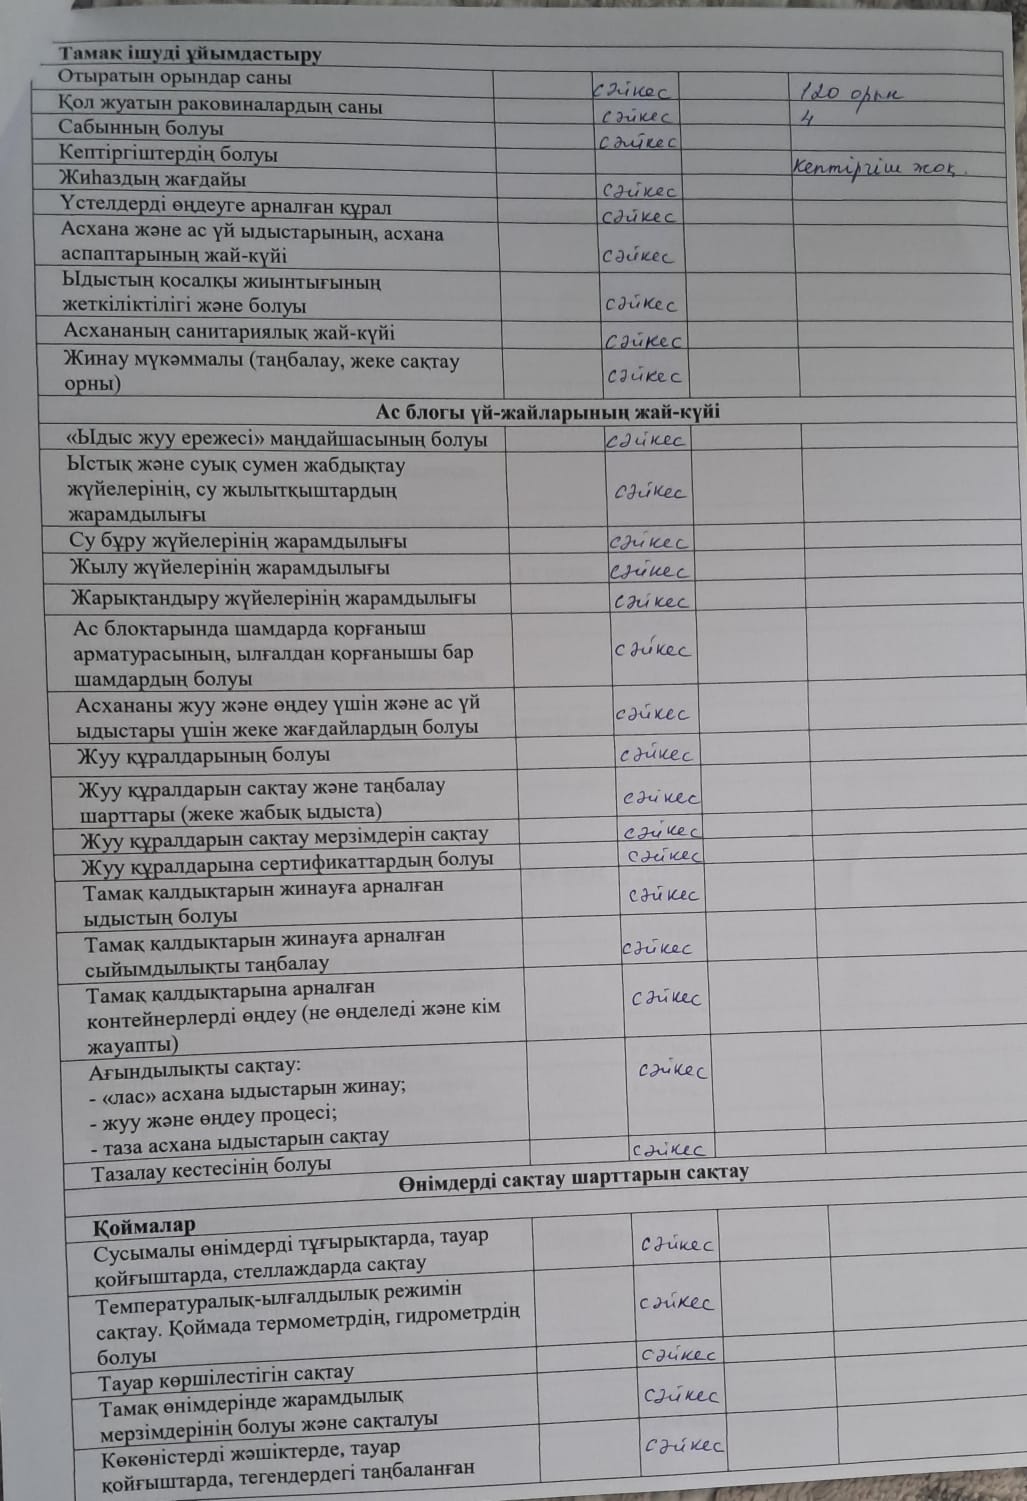 Тамақ ішуді ұйымдастыру
Отыратын орындар саны сәйкес 120 орын
Қол жуатын раковиналардың саны сәйкес 4
Сабынның болуы сәйкес
Кептіргіштердің болуы Кептіргіш жоқ.
Жиһаздың жағдайы сәйкес
Үстелдерді өңдеуге арналған құрал сәйкес
Асхана және ас үй ыдыстарының, асхана
аспаптарының жай-күйі сәйкес
Ыдыстың қосалқы жиынтығының
жеткіліктілігі және болуы сәйкес
Асхананың санитариялық жай-күйі сәйкес
Жинау мүкәммалы (таңбалау, жеке сақтау
орны) сәйкес
Ас блогы үй-жайларының жай-күйі
«Ыдыс жуу ережесі» маңдайшасының болуы сәйкес
Ыстық және суық сумен жабдықтау
жүйелерінің, су жылытқыштардың сәйкес
жарамдылығы
Су бұру жүйелерінің жарамдылығы сәйкес
Жылу жүйелерінің жарамдылығы сәйкес
Жарықтандыру жүйелерінің жарамдылығы сәйкес
Ас блоктарында шамдарда қорғаныш
арматурасының, ылғалдан қорғанышы бар сәйкес
шамдардың болуы
Асхананы жуу және өңдеу үшін және ас үй
ыдыстары үшін жеке жағдайлардың болуы сәйкес
Жуу құралдарының болуы сәйкес
Жуу құралдарын сақтау және таңбалау
шарттары (жеке жабық ыдыста) сәйкес
Жуу құралдарын сақтау мерзімдерін сақтау сәйкес
Жуу құралдарына сертификаттардың болуы сәйкес
Тамақ қалдықтарын жинауға арналған
ыдыстың болуы сәйкес
Тамақ қалдықтарын жинауға арналған
сыйымдылықты таңбалау сәйкес
Тамақ қалдықтарына арналған
контейнерлерді өңдеу (не өңделеді және кім сәйкес
жауапты)
Ағындылықты сақтау: сәйкес
- «лас» асхана ыдыстарын жинау;
- жуу және өңдеу процесі;
- таза асхана ыдыстарын сақтау
Тазалау кестесінің болуы сәйкес
Өнімдерді сақтау шарттарын сақтау
Қоймалар
Сусымалы өнімдерді тұғырықтарда, тауар
қойғыштарда, стеллаждарда сақтау сәйкес
Температуралық-ылғалдылық режимін
сақтау. Қоймада термометрдің, гидрометрдің сәйкес
болуы
Тауар көршілестігін сақтау сәйкес
Тамақ өнімдерінде жарамдылық
мерзімдерінің болуы және сақталуы сәйкес
Көкөністерді жәшіктерде, тауар
қойғыштарда, тегендердегі таңбаланған сәйкес